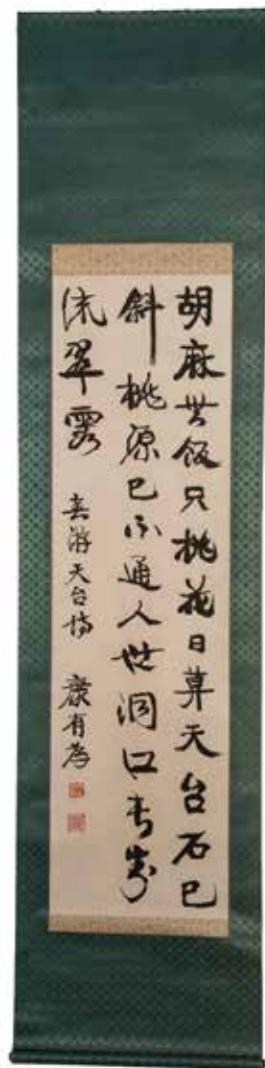 胡麻其飯只桃花日算天台石已
斜桃源已不通人世洞口春步
流翠霞 春游天台诗 康有為